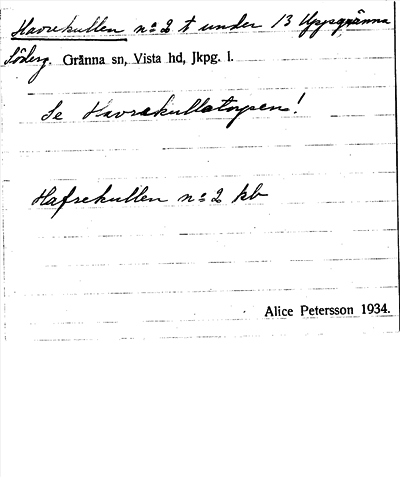 Havrekullen n:o 2 t under 13 Uppgränna
Söderg. Gränna sn, Vista hd, Jkpg. l.
Se Havrekullatorpen!
Hafrekullen n:o 2 kb
Alice Petersson 1934.